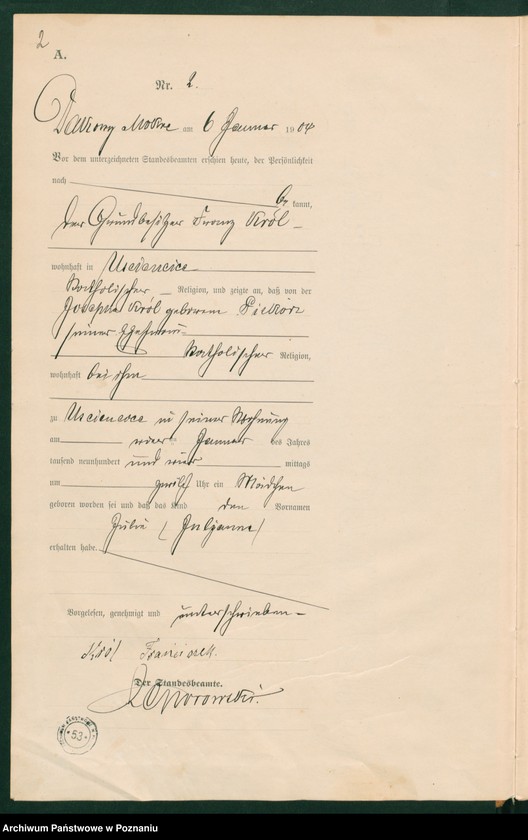 2
A.
Nr. 2.
Dakowy Mokre am 6 Januar 1904
Vor dem unterzeichneten Standesbeamten erschien heute, der Persönlichkeit
nach
be kannt,
der Grundbesitzer Franz Król
wohnhaft in Usciencice
Katholischer Religion, und zeigte an, daß von der
Josepha Król geborenen
seiner Ehefrau
Katholischer Religion,
wohnhaft bei ihm
zu Usciencice in seiner Wohnung
am vier Januar des Jahres
tausend neunhundert und vier mittags
um zwölf Uhr ein Mädchen
geboren worden sei und daß das Kind den Vornamen
Julie (Julyanna)
erhalten habe.
Vorgelesen, genehmigt und unterschrieben
Król Franciszek.
Der Standesbeamte.
53
Archiwum Państwowe w Poznaniu